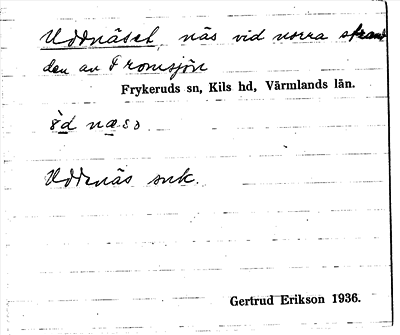 Uddnäset, näs vid norra stran
den av Fromsjön
Frykeruds sn, Kils hd, Värmlands län.
Uddnäs snk.
Gertrud Erikson 1936.